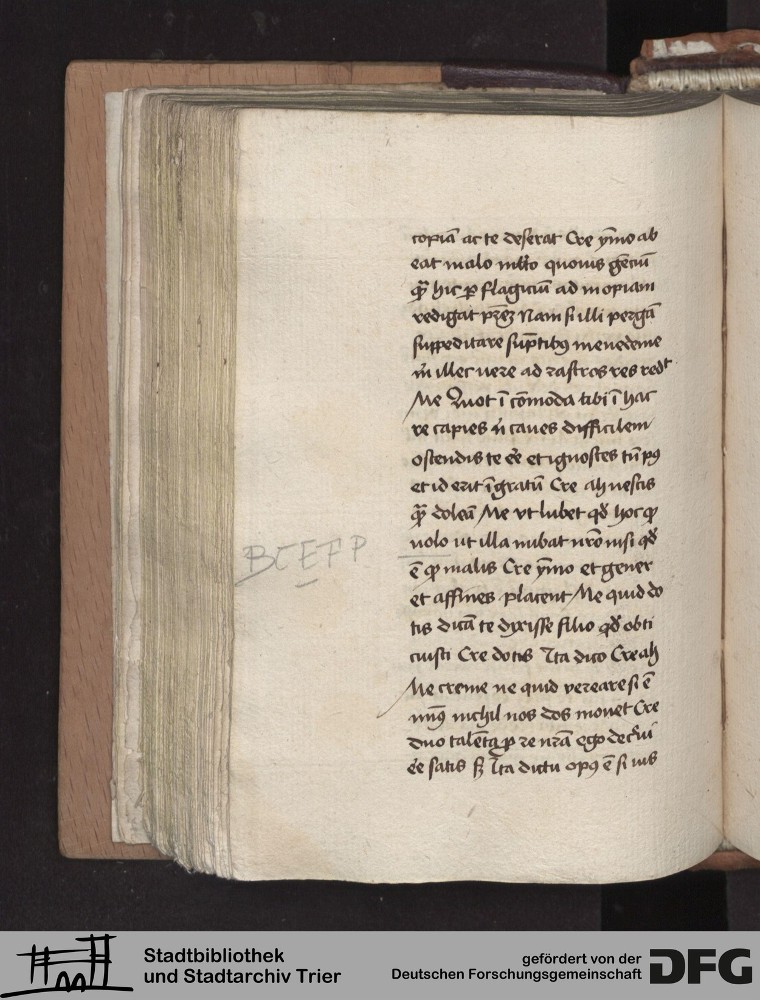 copiā ac te deserat Cre ȳmo ab
eat malo mlto quouis gēciū
qͣ hic ꝑ flagiciū ad inopiam
redigat Nam si illi pergā
suppeditare sūptibꝫ menedeme
m illec uere ad rastros res redt
Me Quot ī cōmoda tibi ī hac
re capies n̄ caues difficilem
ostendis te eē et ignosces tn̄ pꝯ
et id erit īgratū Cre ah nescis
qͣ doleā Me vt lubet qd hoc ꝙ
uolo ut illa nubat nr̄o nisi qd
ē ꝙ malis Cre ȳmo et gener
et affines placent Me quid do
tis dicā te dixisse filio qd obti
cuisti Cre dotis Ita dico Cre ah
Me creme ne quid vereare si ē
minꝯ nichil nos dos mouet Cre
duo talēta ꝓ re nr̄a ego decrui
eē satis sꝫ Ita dictu opꝯ ē si uis
BCEFP
Stadtbibliothek
und Stadtarchiv Trier
gefördert von der
Deutschen Forschungsgemeinschaft
DFG